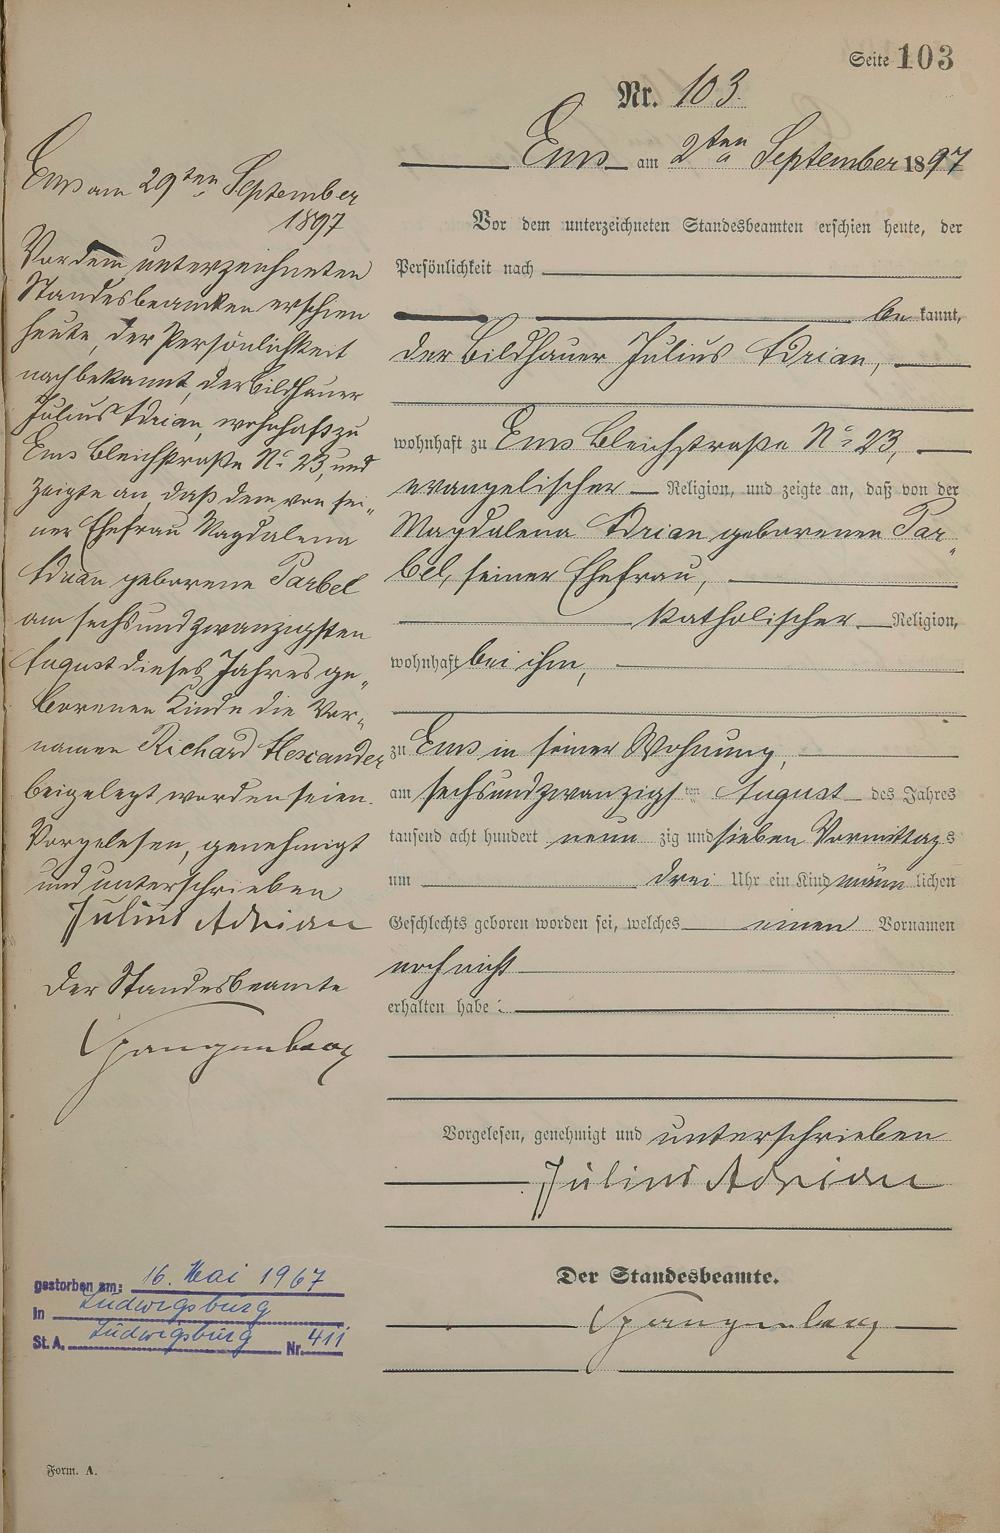 Seite 103
Nr. 103.
Ems am 2ten September 1897
Vor dem unterzeichneten Standesbeamten erschien heute, der
Persönlichkeit nach
be kannt,
der Bildhauer Julius Adrian,
wohnhaft zu Ems Bleichstraße No 23,
evangelischer Religion, und zeigte an, daß von der
Magdalena Adrian geborenen Par„
bel, seiner Ehefrau,
katholischer Religion,
wohnhaft bei ihm,
zu Ems in seiner Wohnung,
am sechsundzwanzigsten August des Jahres
tausend acht hundert neun zig und sieben Vormittags
um drei Uhr ein Kind männ lichen
Geschlechts geboren worden sei, welches einen Vornamen
noch nicht
erhalten habe.
Vorgelesen, genehmigt und unterschrieben
Julius Adrian
Der Standesbeamte.
Ems am 29ten September
1897
Vor dem unterzeichneten
Standesbeamten erschien
heute, der Persönlichkeit
nach bekannt, der Bildhauer
Julius Adrian, wohnhaft zu
Ems Bleichstraße No 23, und
zeigte an, daß dem von sei„
ner Ehefrau Magdalena
Adrian geborene Parbel
am sechsundzwanzigsten
August dieses Jahres ge„
borenen Kinde die Vor„
namen Richard Alexander
beigelegt worden seien.
Vorgelesen, genehmigt
und unterschrieben
Julius Adrian
Der Standesbeamte
gestorben am: 16. Mai 1967
in Ludwigsburg
St. A. Ludwigsburg Nr. 411
Form. A.